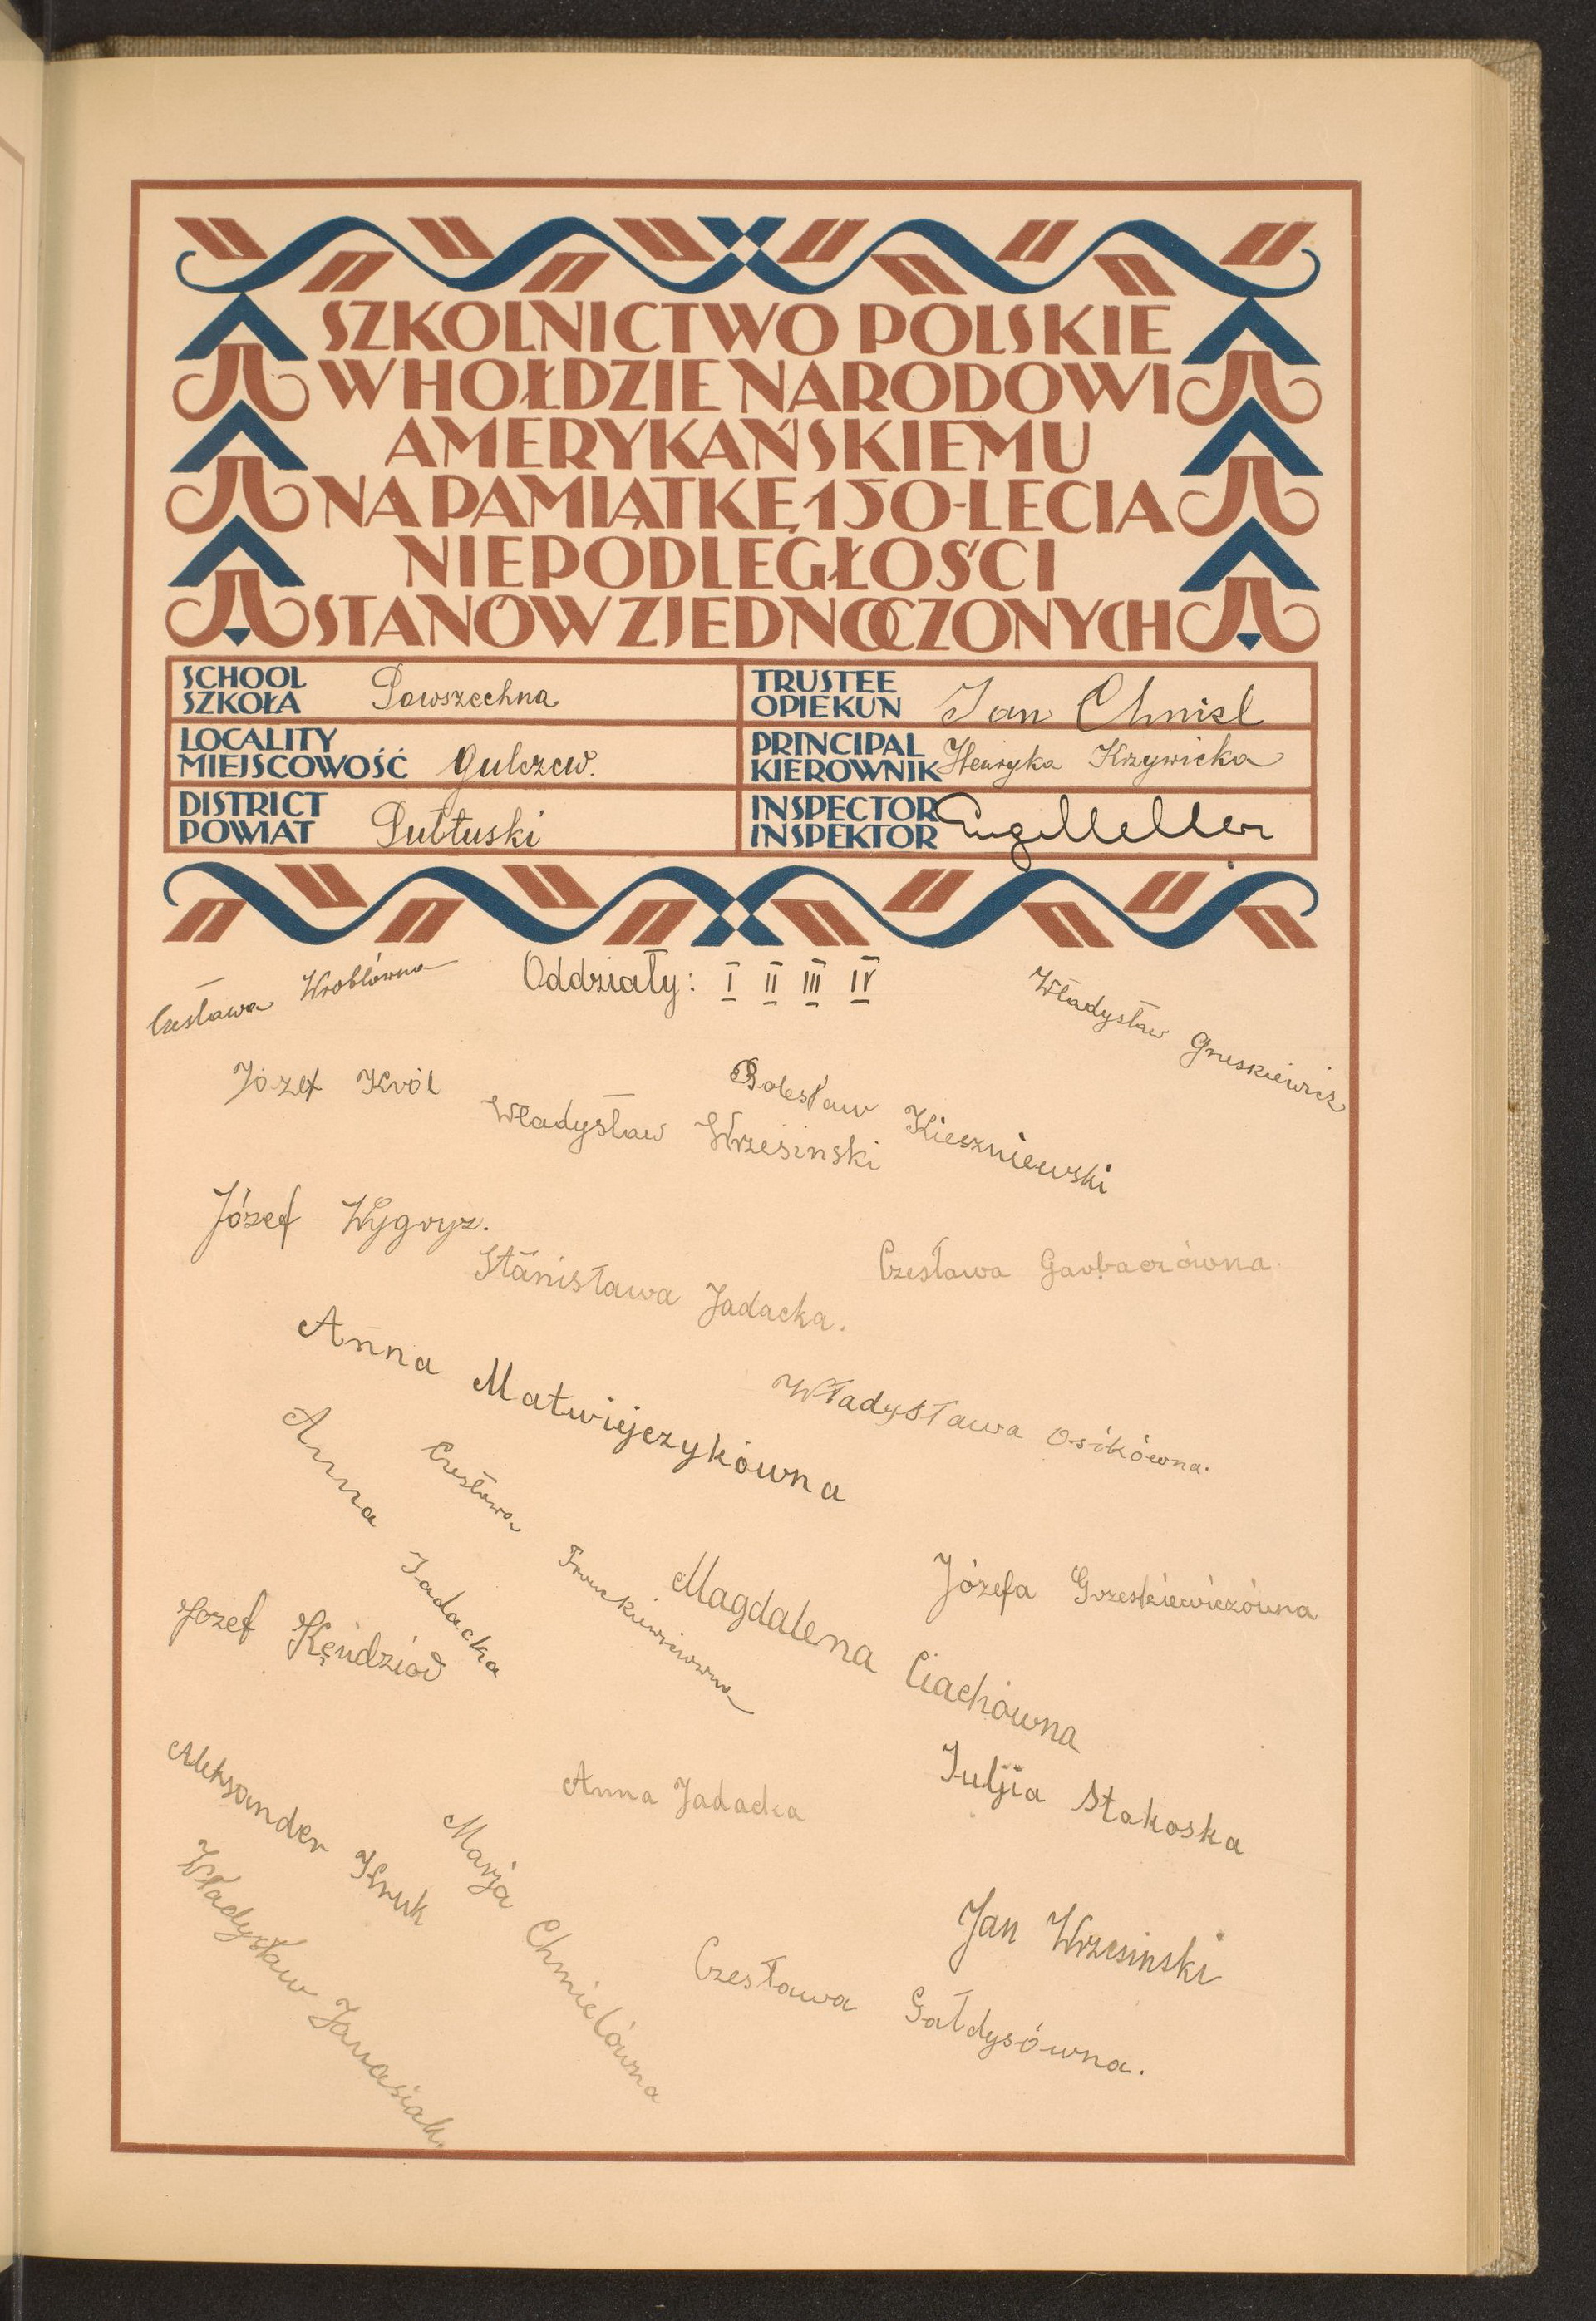 SZKOLNICTWO POLSKIE
W HOŁDZIE NARODOWI
AMERYKAŃSKIEMU
NA PAMIĄTKĘ 150-LECIA
NIEPODLEGŁOŚCI
STANÓW ZJEDNOCZONYCH
SCHOOL
SZKOŁA Powszechna
TRUSTEE
OPIEKUN Jan Chmiel
LOCALITY
MIEJSCOWOŚĆ Gulczew.
PRINCIPAL
KIEROWNIK Henryka Krzywicka
DISTRICT
POWIAT Pułtuski
INSPECTOR
INSPEKTOR
Czesława Wróblówna
Oddziały: I II III IV
Władysław Gneskiewicz
Józef Król
Bolesław Kieszniewski
Władysław Wrzesinski
Józef Wygryz.
Stanisława Jadacka.
Czesława Garbaczówna.
Anna Matwiejczykówna
Władysława Osikówna.
Anna Jadacka
Czesława
Magdalena Ciachówna
Józefa Grzeskiewiczówna
Jozef Kendzior
Aleksander Kruk
Anna Jadacka
Juljia Stakoska
Marja Chmielówna
Władysław Janasiak.
Jan Wrzesinski
Czesława Gałdysówna.